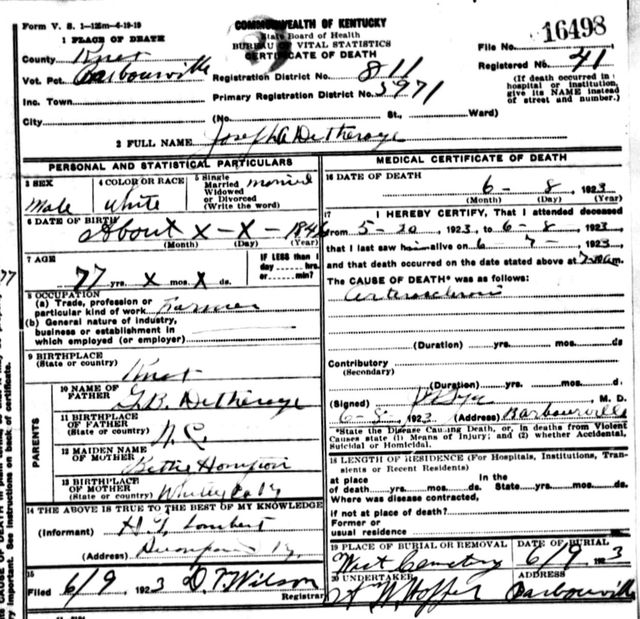 Form V. S. 1-125m-4-19-19
COMMONWEALTH OF KENTUCKY
State Board of Health
BUREAU OF VITAL STATISTICS
CERTIFICATE OF DEATH
File No. 16498
Registered No. 41
(If death occurred in a hospital or institution, give its NAME instead of street and number.)
1 PLACE OF DEATH
County Knox
Vot. Pct. Barbourville
Registration District No. 811
Inc. Town
Primary Registration District No. 5971
City (No. St., Ward)
2 FULL NAME Joseph A Detherage
PERSONAL AND STATISTICAL PARTICULARS
3 SEX Male
4 COLOR OR RACE White
5 Single Married Widowed or Divorced (Write the word) married
6 DATE OF BIRTH About X - X - 184
(Month) (Day) (Year)
7 AGE 77 yrs. X mos. X ds.
IF LESS than 1 day hrs. or min.?
8 OCCUPATION
(a) Trade, profession or particular kind of work Farmer
(b) General nature of industry, business or establishment in which employed (or employer)
9 BIRTHPLACE
(State or country) Knox
PARENTS
10 NAME OF FATHER G.B. Detherage
11 BIRTHPLACE OF FATHER (State or country) N.C.
12 MAIDEN NAME OF MOTHER Bettie
13 BIRTHPLACE OF MOTHER (State or country) Whitley Ky
14 THE ABOVE IS TRUE TO THE BEST OF MY KNOWLEDGE
(Informant) Lambert
(Address) Ky.
15 Filed 6/9 1923 D.T. Wilson
Registrar
MEDICAL CERTIFICATE OF DEATH
16 DATE OF DEATH
6 - 8, 1923
(Month) (Day) (Year)
17 I HEREBY CERTIFY, That I attended deceased
from 5-20, 1923, to 6-8, 1923
that I last saw him alive on 6 7 - 1923
and that death occurred on the date stated above at 7-30 a m.
The CAUSE OF DEATH* was as follows:
Arterosclerosis
(Duration) yrs. mos. ds.
Contributory
(Secondary)
(Duration) yrs. mos. ds.
(Signed) M. D.
6-8, 1923 (Address) Barbourville
*State the Disease Causing Death, or, in deaths from Violent Causes state (1) Means of Injury; and (2) whether Accidental, Suicidal or Homicidal.
18 LENGTH OF RESIDENCE (For Hospitals, Institutions, Transients or Recent Residents)
at place of death yrs. mos. ds. In the State yrs. mos. ds.
Where was disease contracted,
if not at place of death?
Former or
usual residence
19 PLACE OF BURIAL OR REMOVAL West Cemetery
DATE OF BURIAL 6/9 1923
20 UNDERTAKER Hopper
ADDRESS Barbourville
77